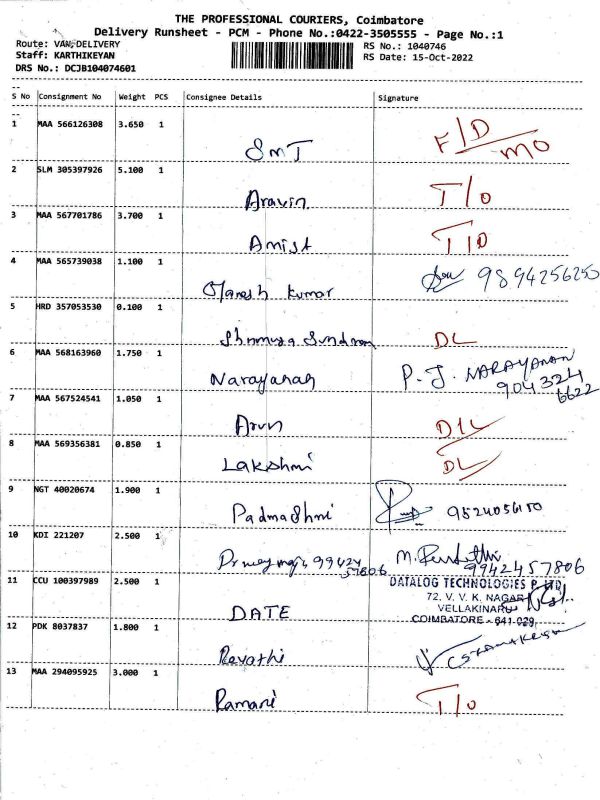 THE PROFESSIONAL COURIERS, Coimbatore
Delivery Runsheet - PCM - Phone No.:0422-3505555 - Page No.:1
Route: VAN,DELIVERY
RS No.: 1040746
Staff: KARTHIKEYAN
RS Date: 15-Oct-2022
DRS No.: DCJB104074601
S No Consignment No Weight PCS Consignee Details Signature
1 MAA 566126308 3.650 1 SMT F/D MO
2 SLM 305397926 5.100 1 Aravin T/O
3 MAA 567701786 3.700 1 Amist T/O
4 MAA 565739038 1.100 1 Kumar 9894256250
5 HRD 357053530 0.100 1 DL
6 MAA 568163960 1.750 1 Narayanan P. J. NARAYANAN
904324
6622
7 MAA 567524541 1.050 1 Arun D/L
8 MAA 569356381 0.850 1 Lakshmi DL
9 NGT 40020674 1.900 1
10 KDI 221207 2.500 1 99424 57806 9942457806
11 CCU 100397989 2.500 1 DATE DATALOG TECHNOLOGIES P LTD
72, V. V. K. NAGAR
VELLAKINARU
COIMBATORE - 641 029.
12 PDK 8037837 1.800 1 Revathi
13 MAA 294095925 3.000 1 Ramani T/O